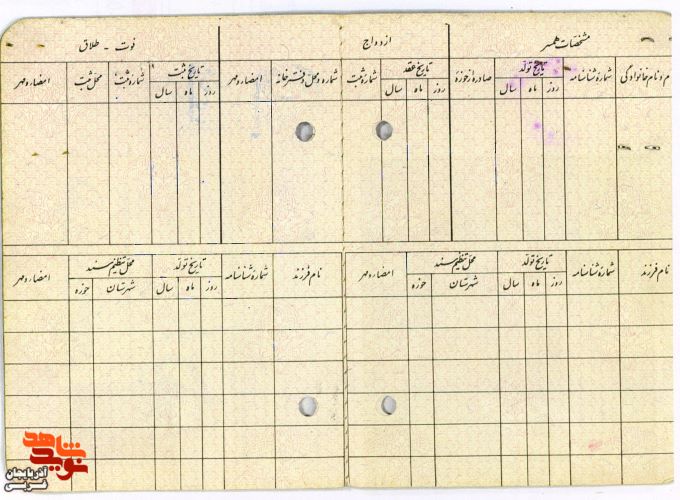 مشخصات همسر
ازدواج
فوت - طلاق
نام و نام خانوادگی
شمارهٔ شناسنامه
تاریخ تولد
روز ماه سال
صادره از حوزه
تاریخ عقد
روز ماه سال
شمارهٔ ثبت
شماره و محل دفترخانه
امضاء و مهر
تاریخ ثبت
روز ماه سال
شمارهٔ ثبت
محل ثبت
امضاء و مهر
نام فرزند
شمارهٔ شناسنامه
تاریخ تولد
روز ماه سال
محل تنظیم سند
شهرستان حوزه
امضاء و مهر
نام فرزند
شمارهٔ شناسنامه
تاریخ تولد
روز ماه سال
محل تنظیم سند
شهرستان حوزه
امضاء و مهر
نوید شاهد
آذربایجان
غربی